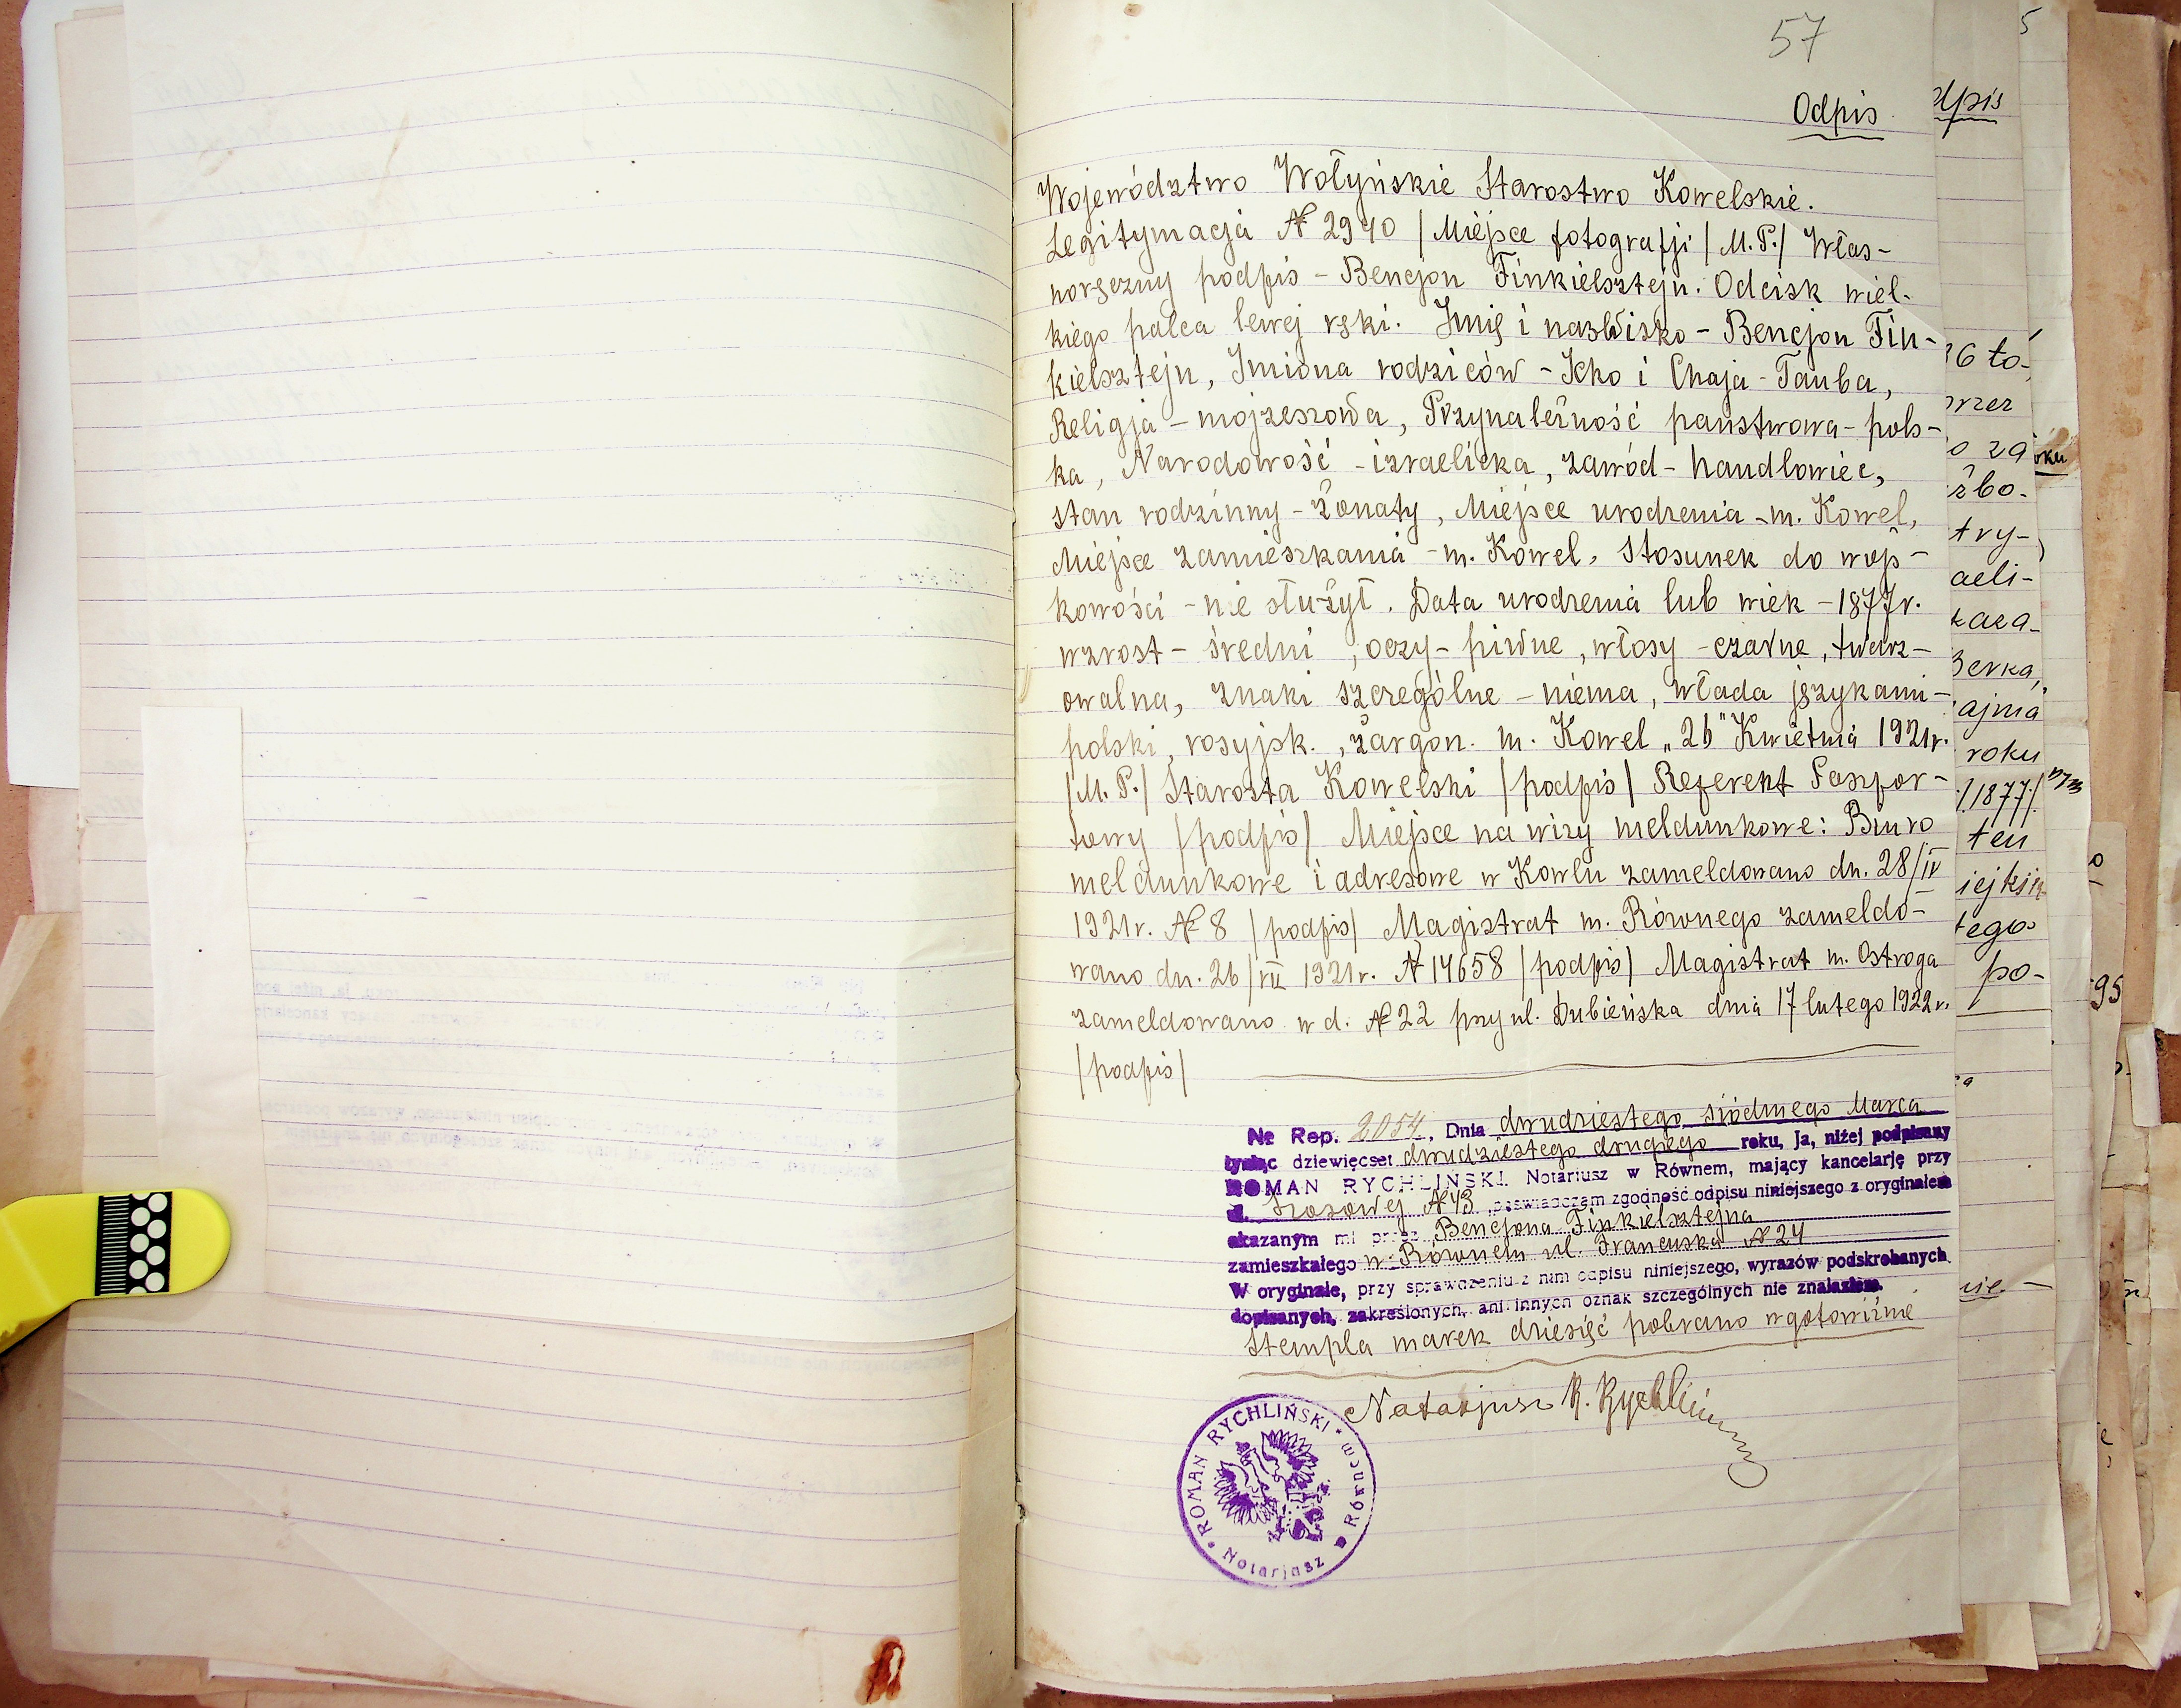 57
Odpis
Województwo Wołyńskie Starostwo Kowelskie.
Legitymacja № 2940 /Miejsce fotografji/ M.P./ Włas-
noręczny podpis - Bencjon Finkielsztejn. Odcisk wiel-
kiego palca lewej ręki. Imię i nazwisko - Bencjon Fin-
kielsztejn, Imiona rodziców - Icko i Chaja-Tauba,
Religja - mojżeszowa, Przynależność państwowa - pols-
ka, Narodowość - izraelicka, zawód - handlowiec,
stan rodzinny - żonaty, Miejsce urodzenia - m. Kowel,
Miejsce zamieszkania - m. Kowel, Stosunek do wojs-
kowości - nie służył. Data urodzenia lub wiek - 1877r.
wzrost - średni, oczy - piwne, włosy - czarne, twarz -
owalna, znaki szczególne - niema, włada językami -
polski, rosyjsk., żargon. m. Kowel „26" Kwietnia 1921r.
/M.P./ Starosta Kowelski /podpis/ Referent Paszpor-
towy /podpis/ Miejsce na wizy meldunkowe: Biuro
meldunkowe i adresowe w Kowlu zameldowano dn. 28/IV
1921r. № 8 /podpis/ Magistrat m. Równego zameldo-
wano dn. 26/VII 1921r. № 14658 /podpis/ Magistrat m. Ostroga
zameldowano w d. № 22 przy ul. Dubieńska dnia 17 lutego 1922r.
/podpis/
№ Rep. 2054, Dnia dwudziestego siódmego Marca
tysiąc dziewięcset dwudziestego drugiego roku, ja, niżej podpisany
ROMAN RYCHLINSKI. Notariusz w Równem, mający kancelarję przy
ul. Szosowej № 43 poświadczam zgodność odpisu niniejszego z oryginałem
okazanym mi przez Bencjona Finkielsztejna
zamieszkałego w Równem ul. Francuska № 24
W oryginale, przy sprawdzeniu z nim odpisu niniejszego, wyrazów podskrobanych,
dopisanych, zakreślonych, ani innych oznak szczególnych nie znalazłem.
Stempla marek dziesięć pobrano w gotowiźnie
Notarjusz R. Rychliński
ROMAN RYCHLIŃSKI
w Równem
Notarjusz
5
dpis
96 to-
przez
o za
żbo-
try-
aeli-
kaca-
Berka,
ajma
roku
/1877/
ten
iejkin
tego
po-
95